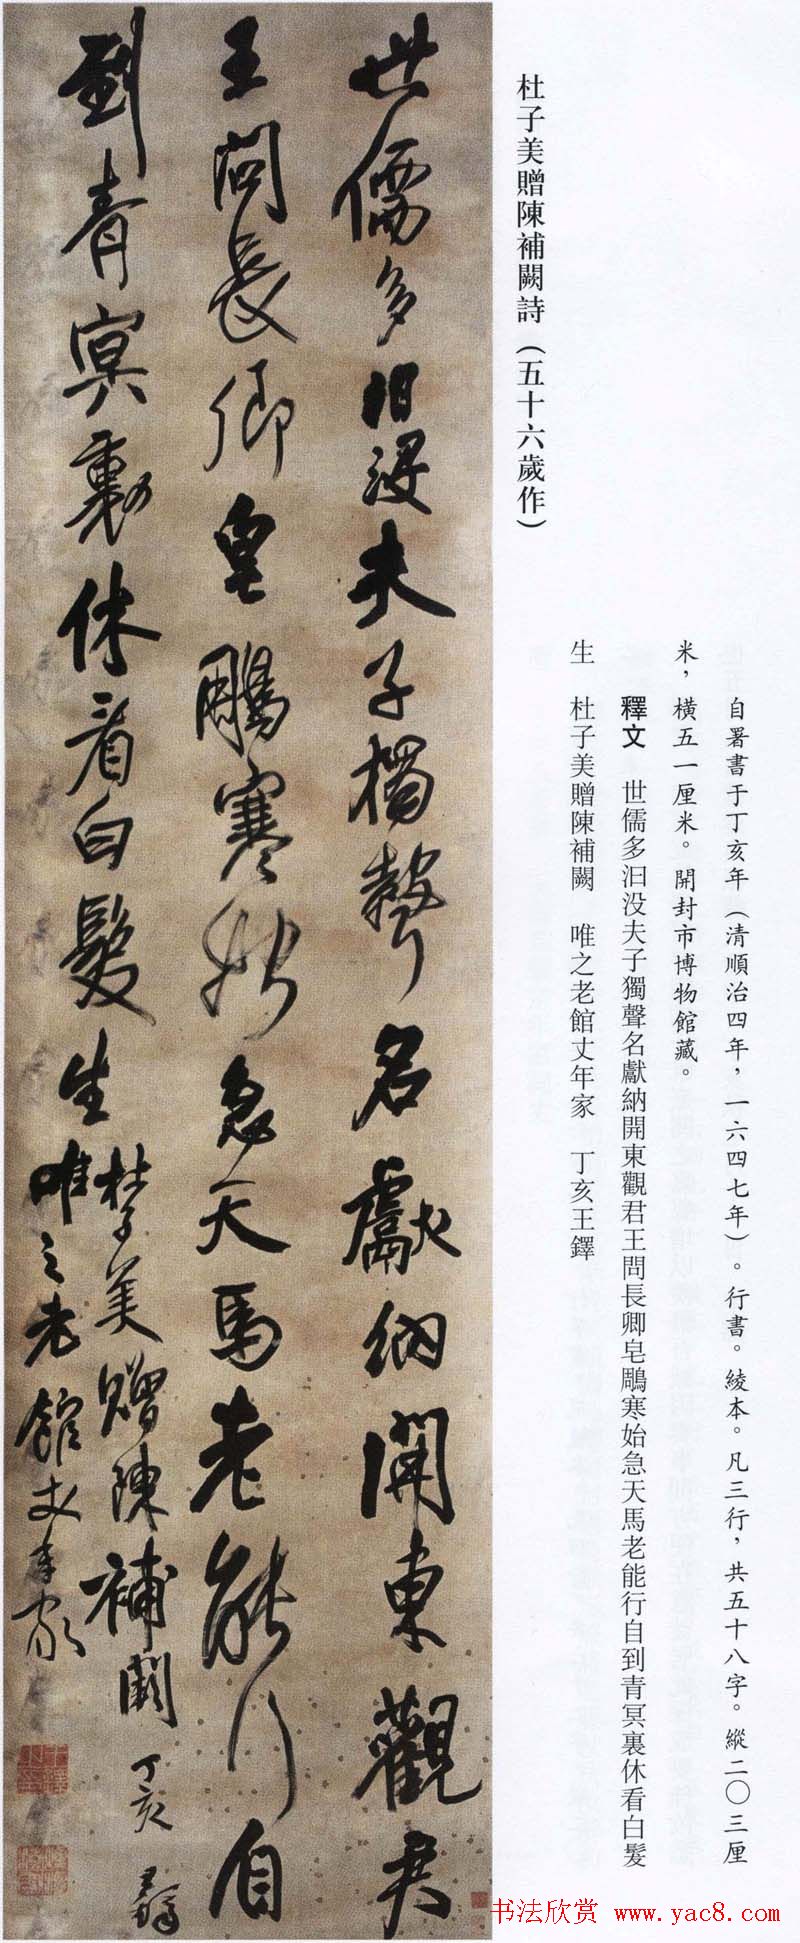 杜子美贈陳補闕詩（五十六歲作）
自署書于丁亥年（清順治四年，一六四七年）。行書。綾本。凡三行，共五十八字。縱二〇三厘
米，橫五一厘米。開封市博物館藏。
釋文 世儒多汩没夫子獨聲名獻納開東觀君王問長卿皂鵰寒始急天馬老能行自到青冥裏休看白髮
生 杜子美贈陳補闕 唯之老館丈年家 丁亥王鐸
世儒多汩没夫子獨聲名獻納開東觀君
王問長卿皂鵰寒始急天馬老能行自
到青冥裏休看白髮生
杜子美贈陳補闕 丁亥 王鐸
唯之老館丈年家
书法欣赏 www.yac8.com